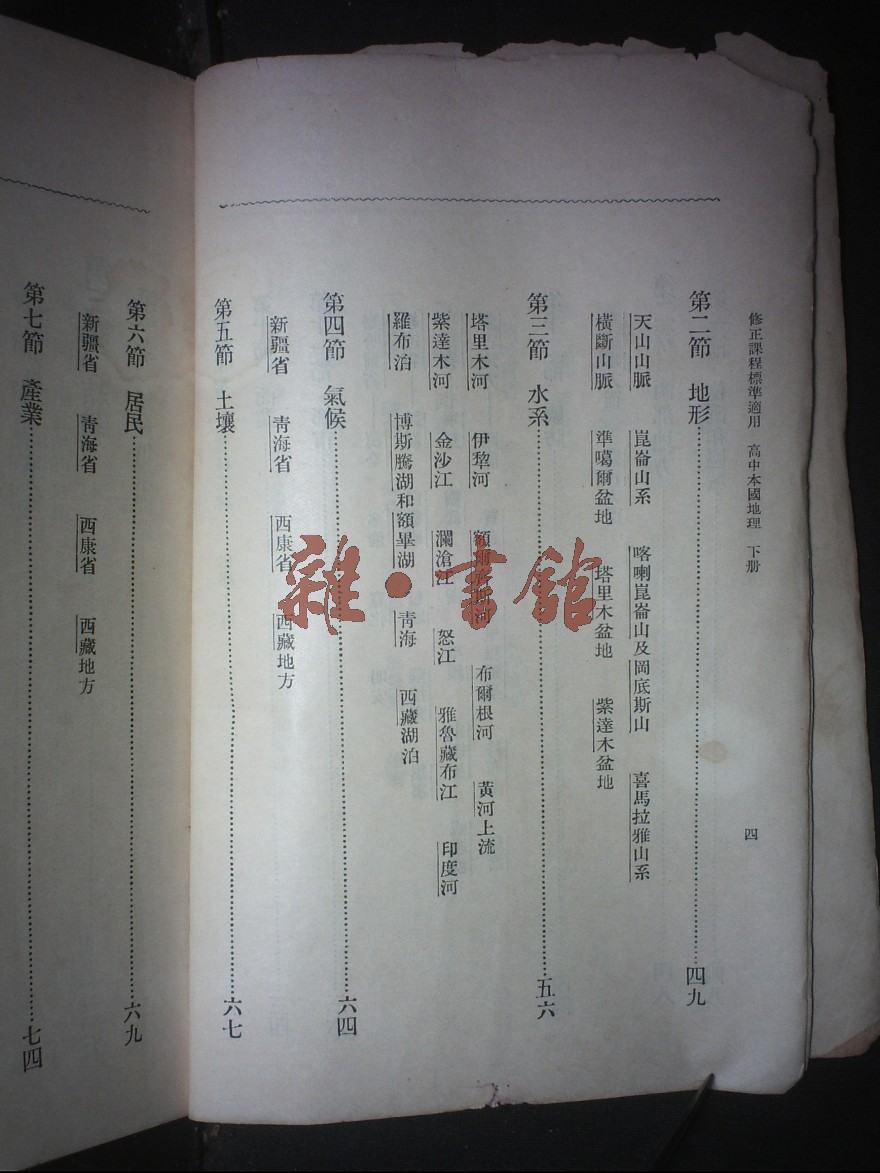 修正課程標準適用　高中本國地理　下册
四
第二節　地形……四九
天山山脈　崑崙山系　喀喇崑崙山及岡底斯山　喜馬拉雅山系
橫斷山脈　準噶爾盆地　塔里木盆地　紫達木盆地
第三節　水系……五六
塔里木河　伊犂河　額爾齊斯河　布爾根河　黃河上流
紫達木河　金沙江　瀾滄江　怒江　雅魯藏布江　印度河
羅布泊　博斯騰湖和額畢湖　青海　西藏湖泊
第四節　氣候……六四
新疆省　青海省　西康省　西藏地方
第五節　土壤……六七
第六節　居民……六九
新疆省　青海省　西康省　西藏地方
第七節　產業……七四
雜·書舘